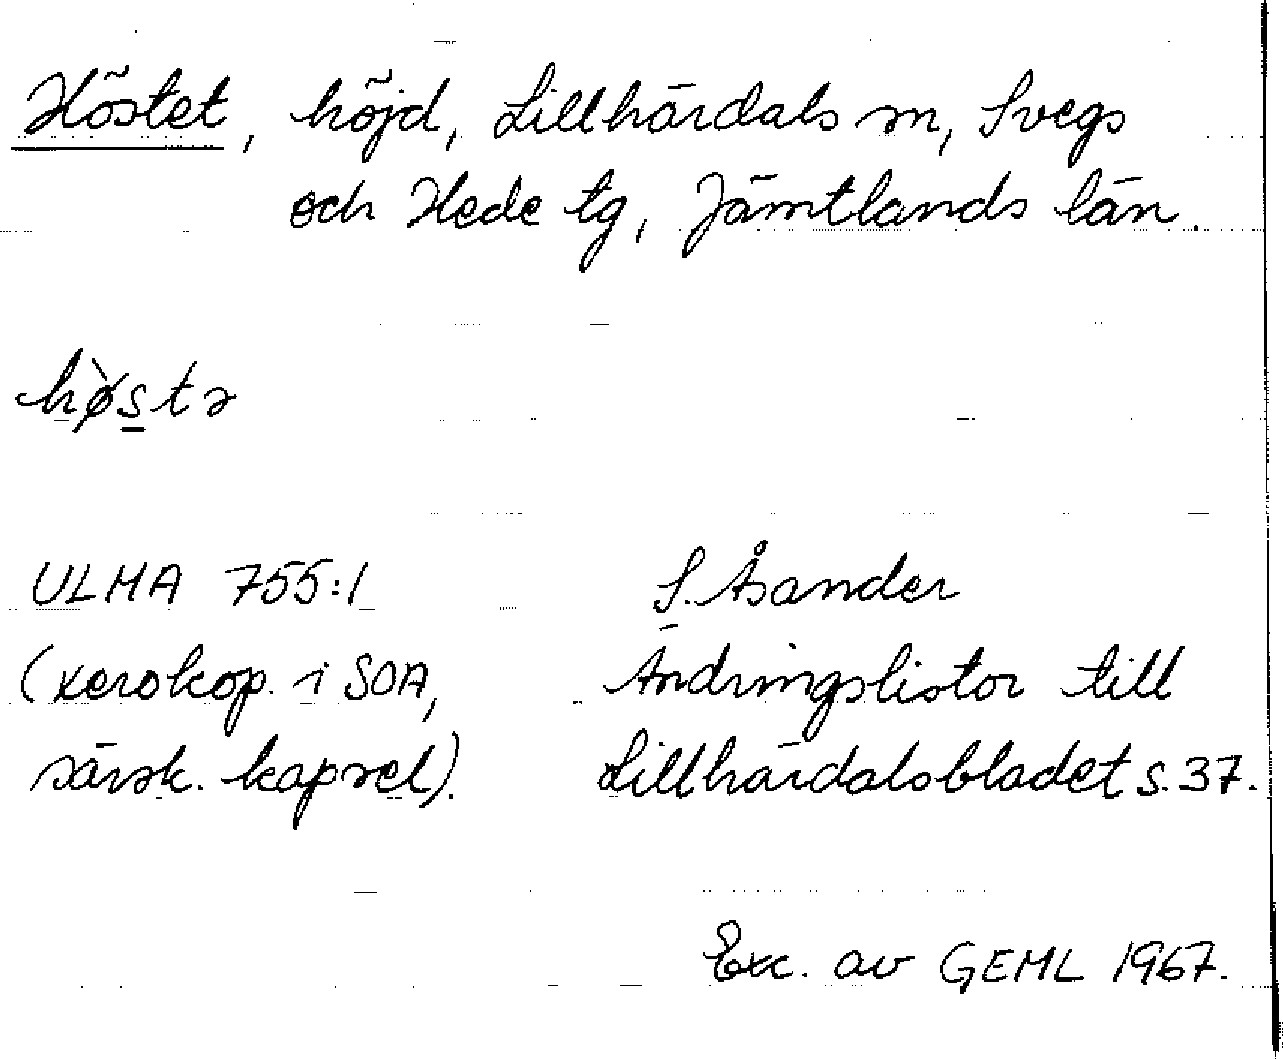 Höstet, höjd, Lillhärdals sn, Svegs
och Hede tg, Jämtlands län.
hø̀stə
ULMA 755:1
(xerokop. i SOA,
särsk. kapsel).
S. Åsander
Ändringslistor till
Lillhärdalsbladet s. 37.
Exc. av GEML 1967.